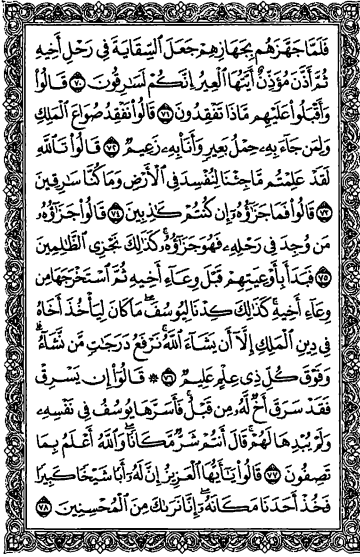 فَلَمَّا جَهَّزَهُم بِجَهَازِهِمْ جَعَلَ ٱلسِّقَايَةَ فِى رَحْلِ أَخِيهِ
ثُمَّ أَذَّنَ مُؤَذِّنٌ أَيَّتُهَا ٱلْعِيرُ إِنَّكُمْ لَسَٰرِقُونَ ۝٧٠ قَالُوا۟
وَأَقْبَلُوا۟ عَلَيْهِم مَّاذَا تَفْقِدُونَ ۝٧١ قَالُوا۟ نَفْقِدُ صُوَاعَ ٱلْمَلِكِ
وَلِمَن جَآءَ بِهِۦ حِمْلُ بَعِيرٍ وَأَنَا۠ بِهِۦ زَعِيمٌ ۝٧٢ قَالُوا۟ تَٱللَّهِ
لَقَدْ عَلِمْتُم مَّا جِئْنَا لِنُفْسِدَ فِى ٱلْأَرْضِ وَمَا كُنَّا سَٰرِقِينَ
۝٧٣ قَالُوا۟ فَمَا جَزَٰٓؤُهُۥٓ إِن كُنتُمْ كَٰذِبِينَ ۝٧٤ قَالُوا۟ جَزَٰٓؤُهُۥ
مَن وُجِدَ فِى رَحْلِهِۦ فَهُوَ جَزَٰٓؤُهُۥ كَذَٰلِكَ نَجْزِى ٱلظَّٰلِمِينَ
۝٧٥ فَبَدَأَ بِأَوْعِيَتِهِمْ قَبْلَ وِعَآءِ أَخِيهِ ثُمَّ ٱسْتَخْرَجَهَا مِن
وِعَآءِ أَخِيهِ كَذَٰلِكَ كِدْنَا لِيُوسُفَ مَا كَانَ لِيَأْخُذَ أَخَاهُ
فِى دِينِ ٱلْمَلِكِ إِلَّآ أَن يَشَآءَ ٱللَّهُ نَرْفَعُ دَرَجَٰتٍ مَّن نَّشَآءُ
وَفَوْقَ كُلِّ ذِى عِلْمٍ عَلِيمٌ ۝٧٦ ۞ قَالُوٓا۟ إِن يَسْرِقْ
فَقَدْ سَرَقَ أَخٌ لَّهُۥ مِن قَبْلُ فَأَسَرَّهَا يُوسُفُ فِى نَفْسِهِۦ
وَلَمْ يُبْدِهَا لَهُمْ قَالَ أَنتُمْ شَرٌّ مَّكَانًا وَٱللَّهُ أَعْلَمُ بِمَا
تَصِفُونَ ۝٧٧ قَالُوا۟ يَٰٓأَيُّهَا ٱلْعَزِيزُ إِنَّ لَهُۥٓ أَبًا شَيْخًا كَبِيرًا
فَخُذْ أَحَدَنَا مَكَانَهُۥٓ إِنَّا نَرَىٰكَ مِنَ ٱلْمُحْسِنِينَ ۝٧٨